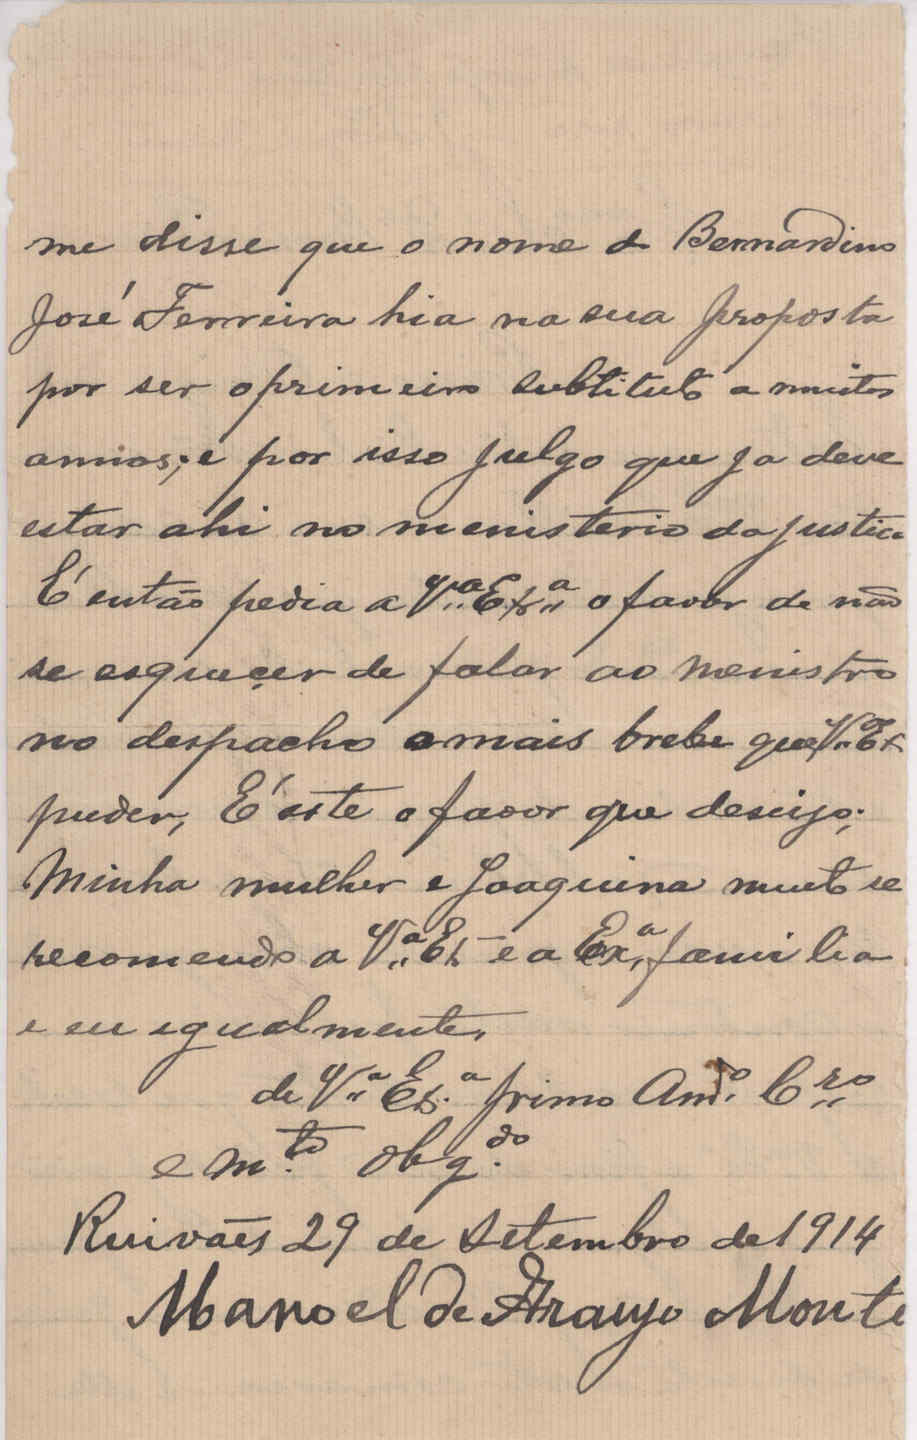 me disse que o nome do Bernardino
José Ferreira hia na sua proposta
por ser o primeiro subtituto a muitos
annos; e por isso julgo que ja deve
estar ahi no menisterio da justica
É então pedia a V.ª Ex.ª o favor de não
se esqueçer de falar ao menistro
no despacho o mais brebe que V.ª Ex
puder, É este o favor que deseijo;
Minha mulher e Joaquina muito se
recomendo a V.ª Ex e a Ex.ª familia
e eu egualmente,
de V.ª Ex.ª primo Am.º C.ro
e m.to obg.do
Ruivães 29 de Setembro de 1914
Manoel de Araujo Monte